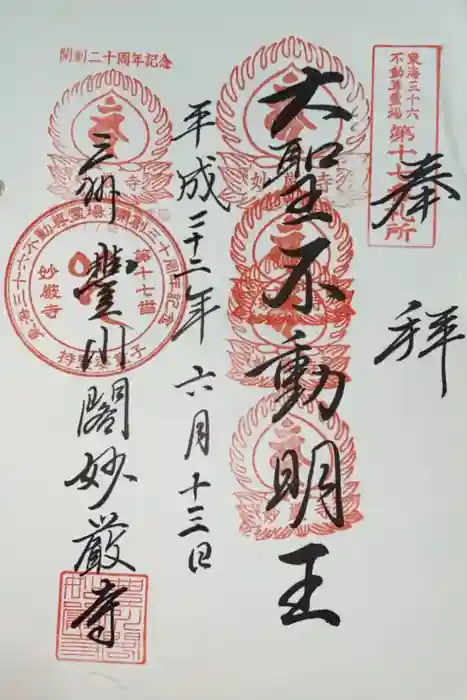 奉拝
東海三十六
不動尊霊場
第十七番札所
大聖不動明王
平成二十二年六月十三日
開創二十周年記念
三州豊川閣妙厳寺
東海三十六不動尊霊場開創二十周年記念
第十七番
妙厳寺